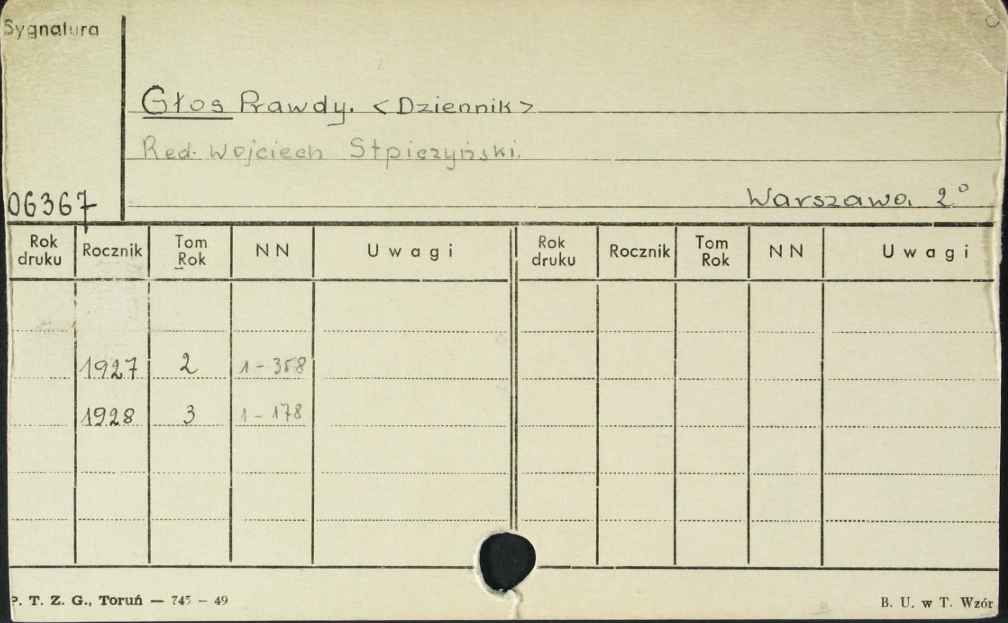 Sygnatura
Głos Prawdy. <Dziennik>
Red. Wojciech Stpiczyński.
06367
Warszawa. 2°
Rok druku Rocznik Tom Rok NN Uwagi Rok druku Rocznik Tom Rok NN Uwagi
1927 2 1-358
1928 3 1-178
P. T. Z. G., Toruń — 745 - 49 B. U. w T. Wzór